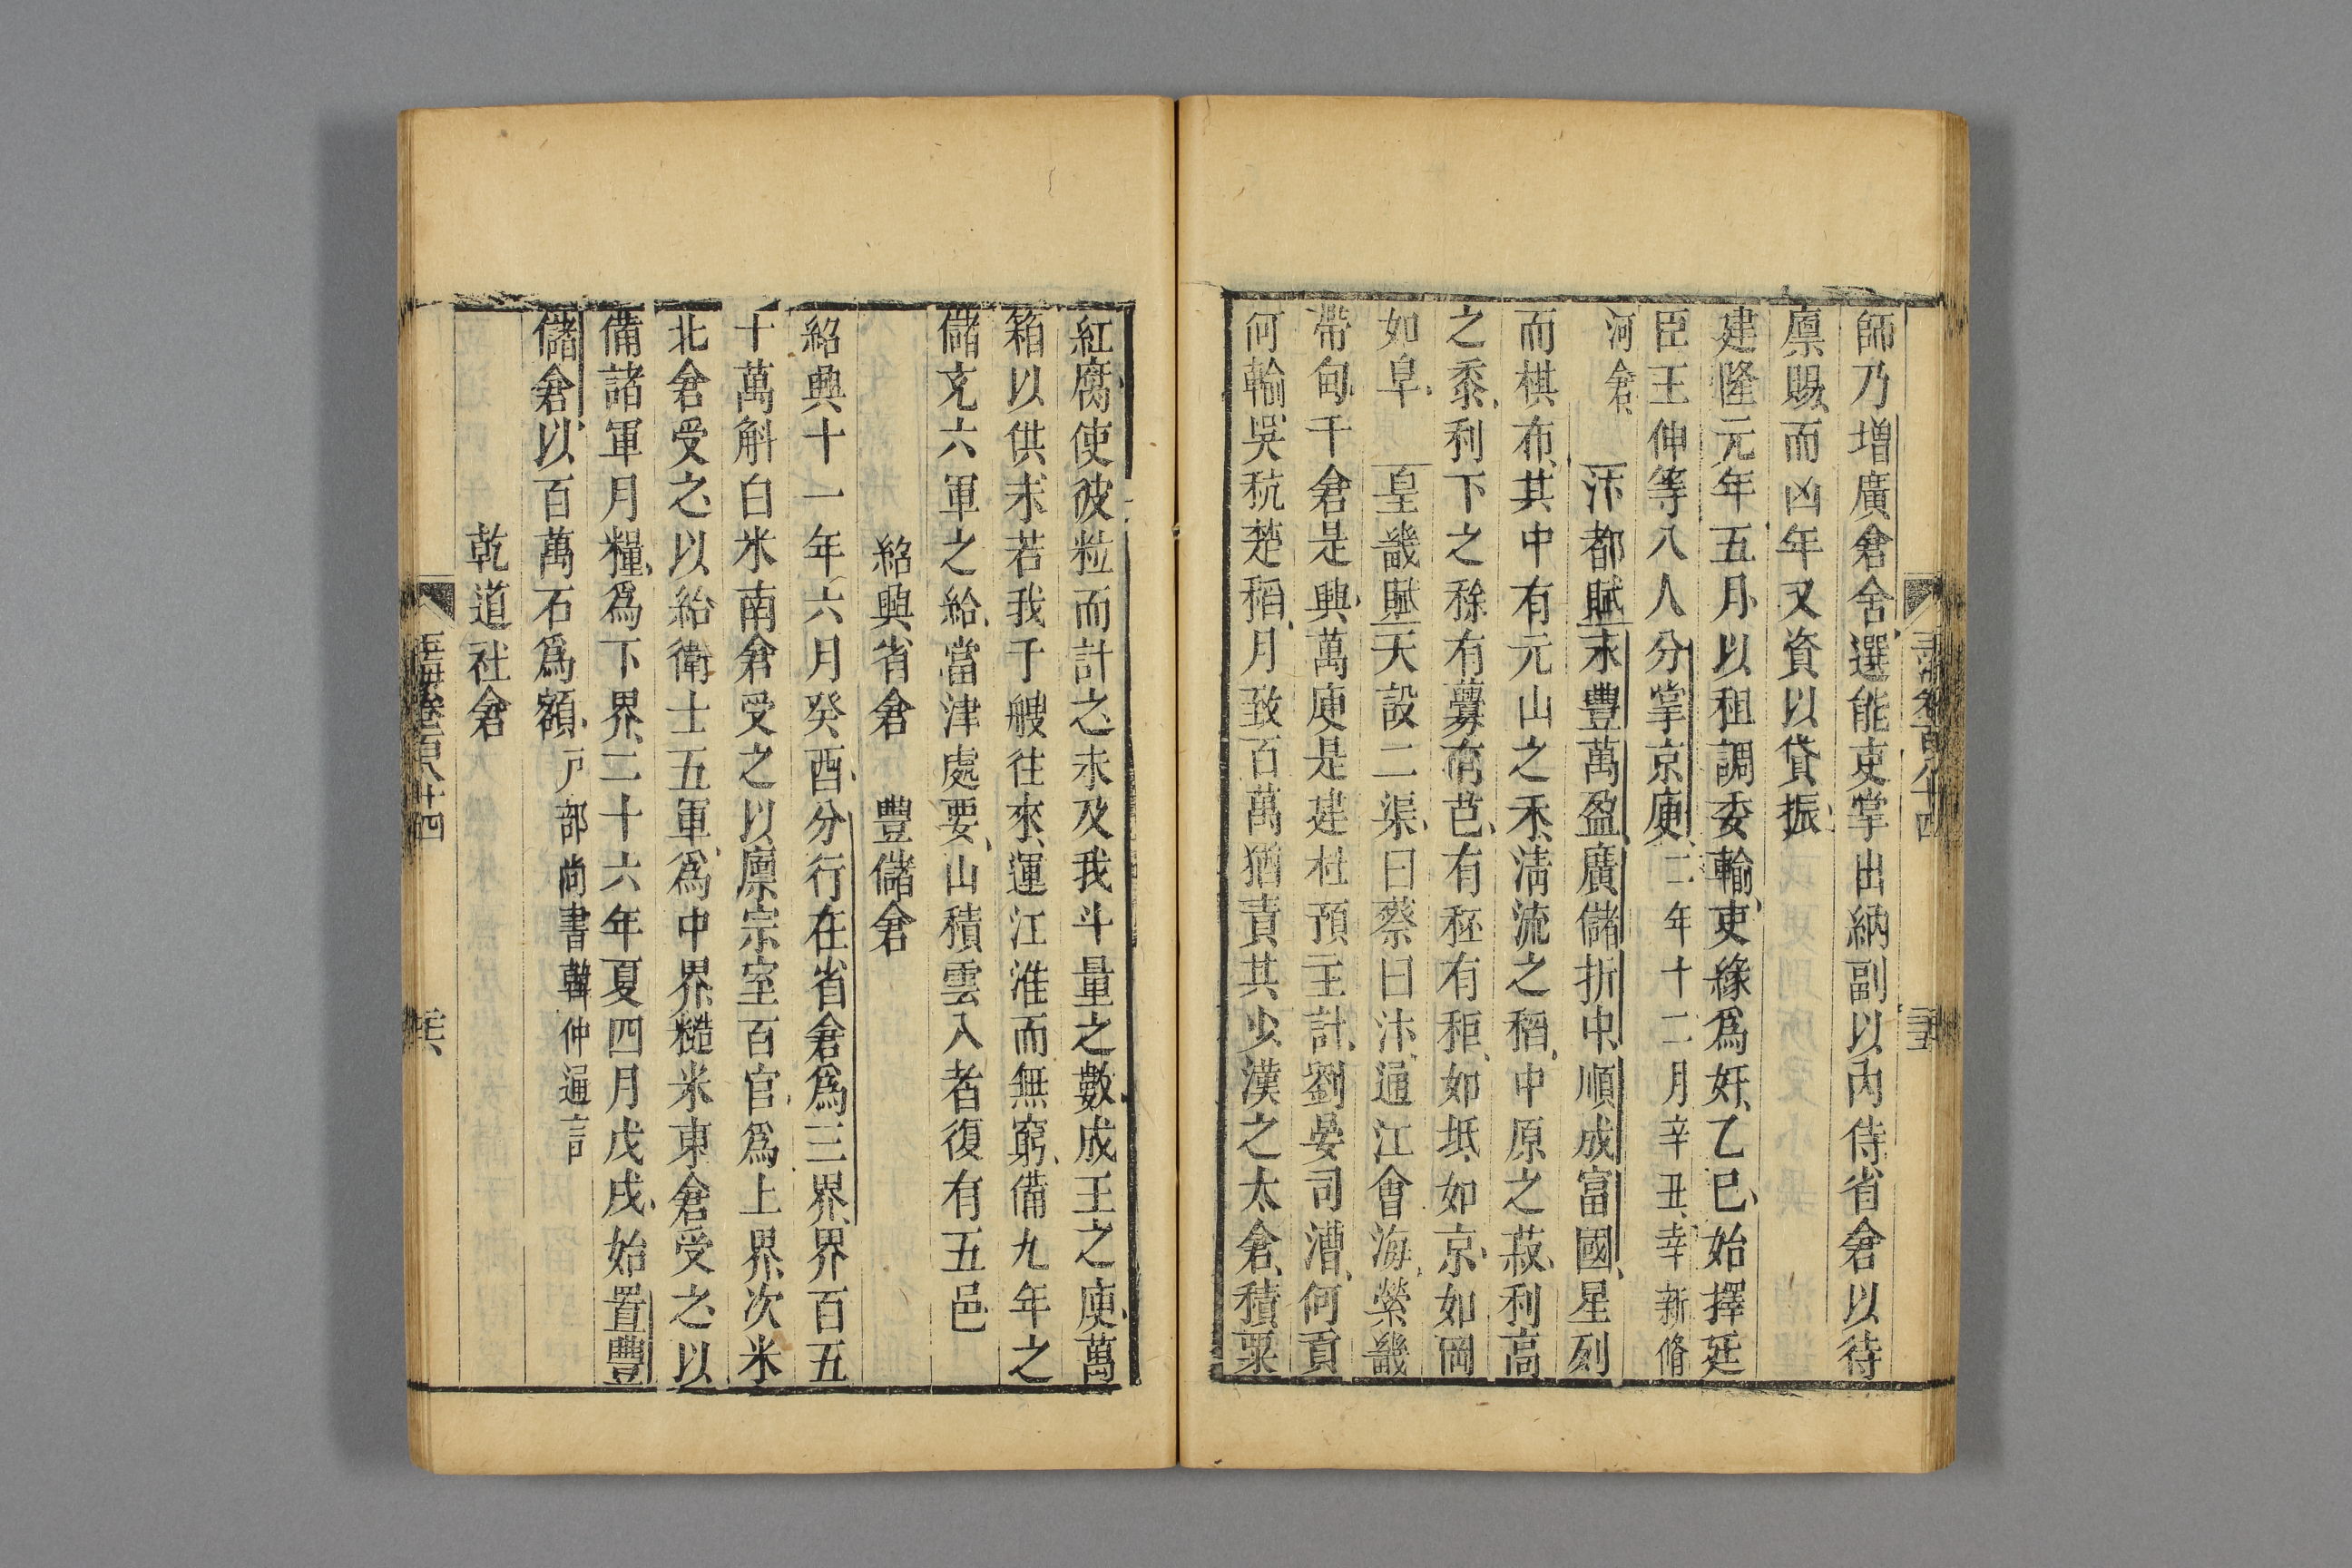 師乃增廣倉舍選能吏掌出納副以內侍省倉以待
廪賜而凶年又資以貸振
建隆元年五月以租調委輸吏緣爲奸乙巳始擇廷
臣王伸等八人分掌京庾二年十二月辛丑幸新脩
河倉 汴都賦末豐萬盈廣儲折中順成富國星列
而棋布其中有元山之禾淸流之稻中原之菽利高
之黍利下之稌有虋有芑有秠有秬如坻如京如岡
如阜 皇畿賦天設二渠曰蔡曰汴通江會海縈畿
帶甸千倉是興萬庾是建杜預主計劉晏司漕何貢
何輸吳秔楚稻月致百萬猶責其少漢之太倉積粟
玉海卷百八十四
三五
紅腐使彼粒而計之未及我斗量之數成王之庾萬
箱以供未若我千艘往來運江淮而無窮備九年之
儲充六軍之給當津處要山積雲入者復有五邑
紹興省倉 豐儲倉
紹興十一年六月癸酉分行在省倉爲三界界百五
十萬斛白米南倉受之以廪宗室百官爲上界次米
北倉受之以給衛士五軍爲中界糙米東倉受之以
備諸軍月糧爲下界二十六年夏四月戊戌始置豐
儲倉以百萬石爲額戶部尚書韓仲通言
乾道社倉
玉海卷百八十四